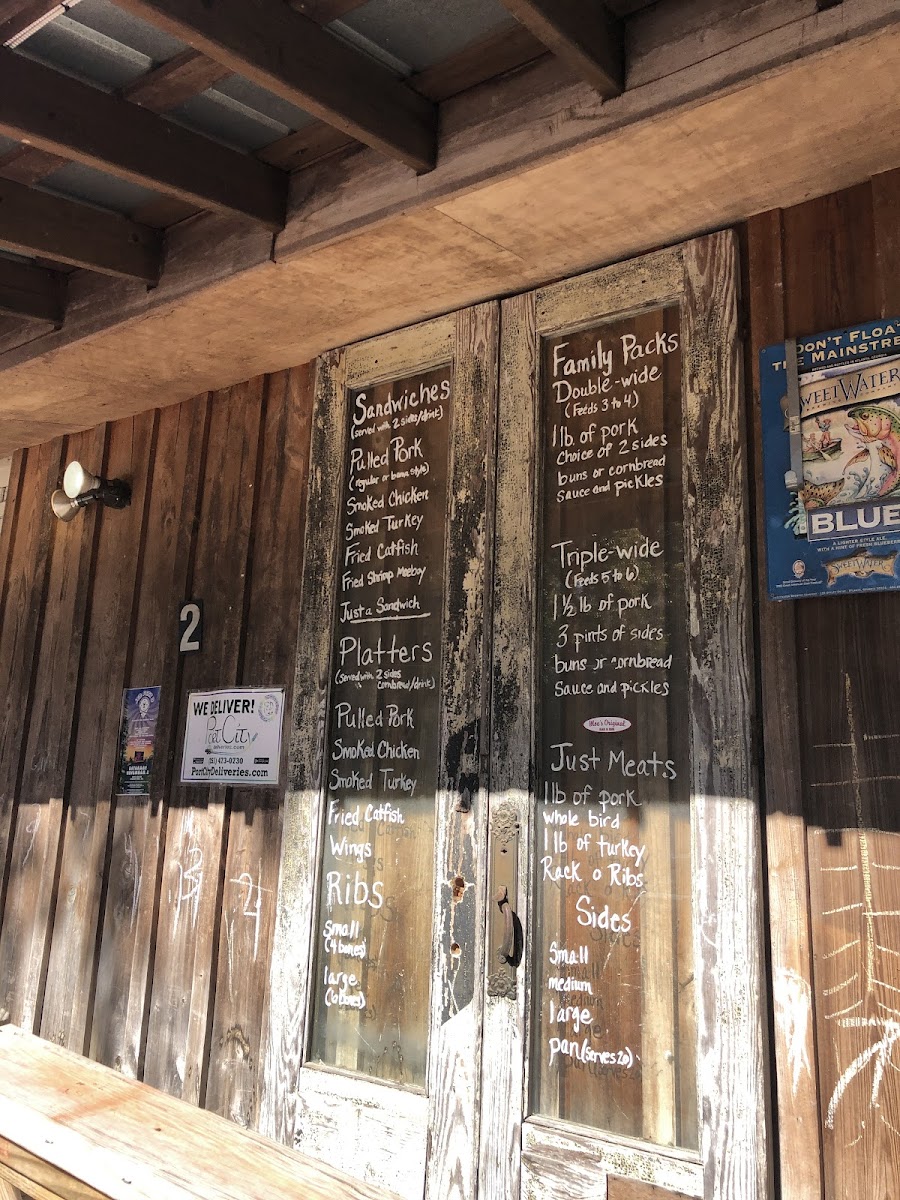 Sandwiches
(served with 2 sides/drink)
Pulled Pork
(regular or bama style)
Smoked Chicken
Smoked Turkey
Fried Catfish
Fried Shrimp
Just a Sandwich
Platters
(served with 2 sides
cornbread/drink)
Pulled Pork
Smoked Chicken
Smoked Turkey
Fried Catfish
Wings
Ribs
Small
(4 bones)
large
Family Packs
Double-wide
(Feeds 3 to 4)
1 lb. of pork
Choice of 2 sides
buns or cornbread
sauce and pickles
Triple-wide
(Feeds 5 to 6)
1 1/2 lb of pork
3 pints of sides
buns or cornbread
Sauce and pickles
Moe's Original
Just Meats
1 lb of pork
whole bird
1 lb of turkey
Rack o Ribs
Sides
Small
medium
large
pan (serves 20)
2
WE DELIVER!
Port City
(251) 473-0730
PortCityDeliveries.com
DON'T FLOAT
THE MAINSTRE
SWEETWATER
BLUE
A LIGHTER STYLE ALE
WITH A HINT OF FRESH BLUEBERR
SWEETWATER